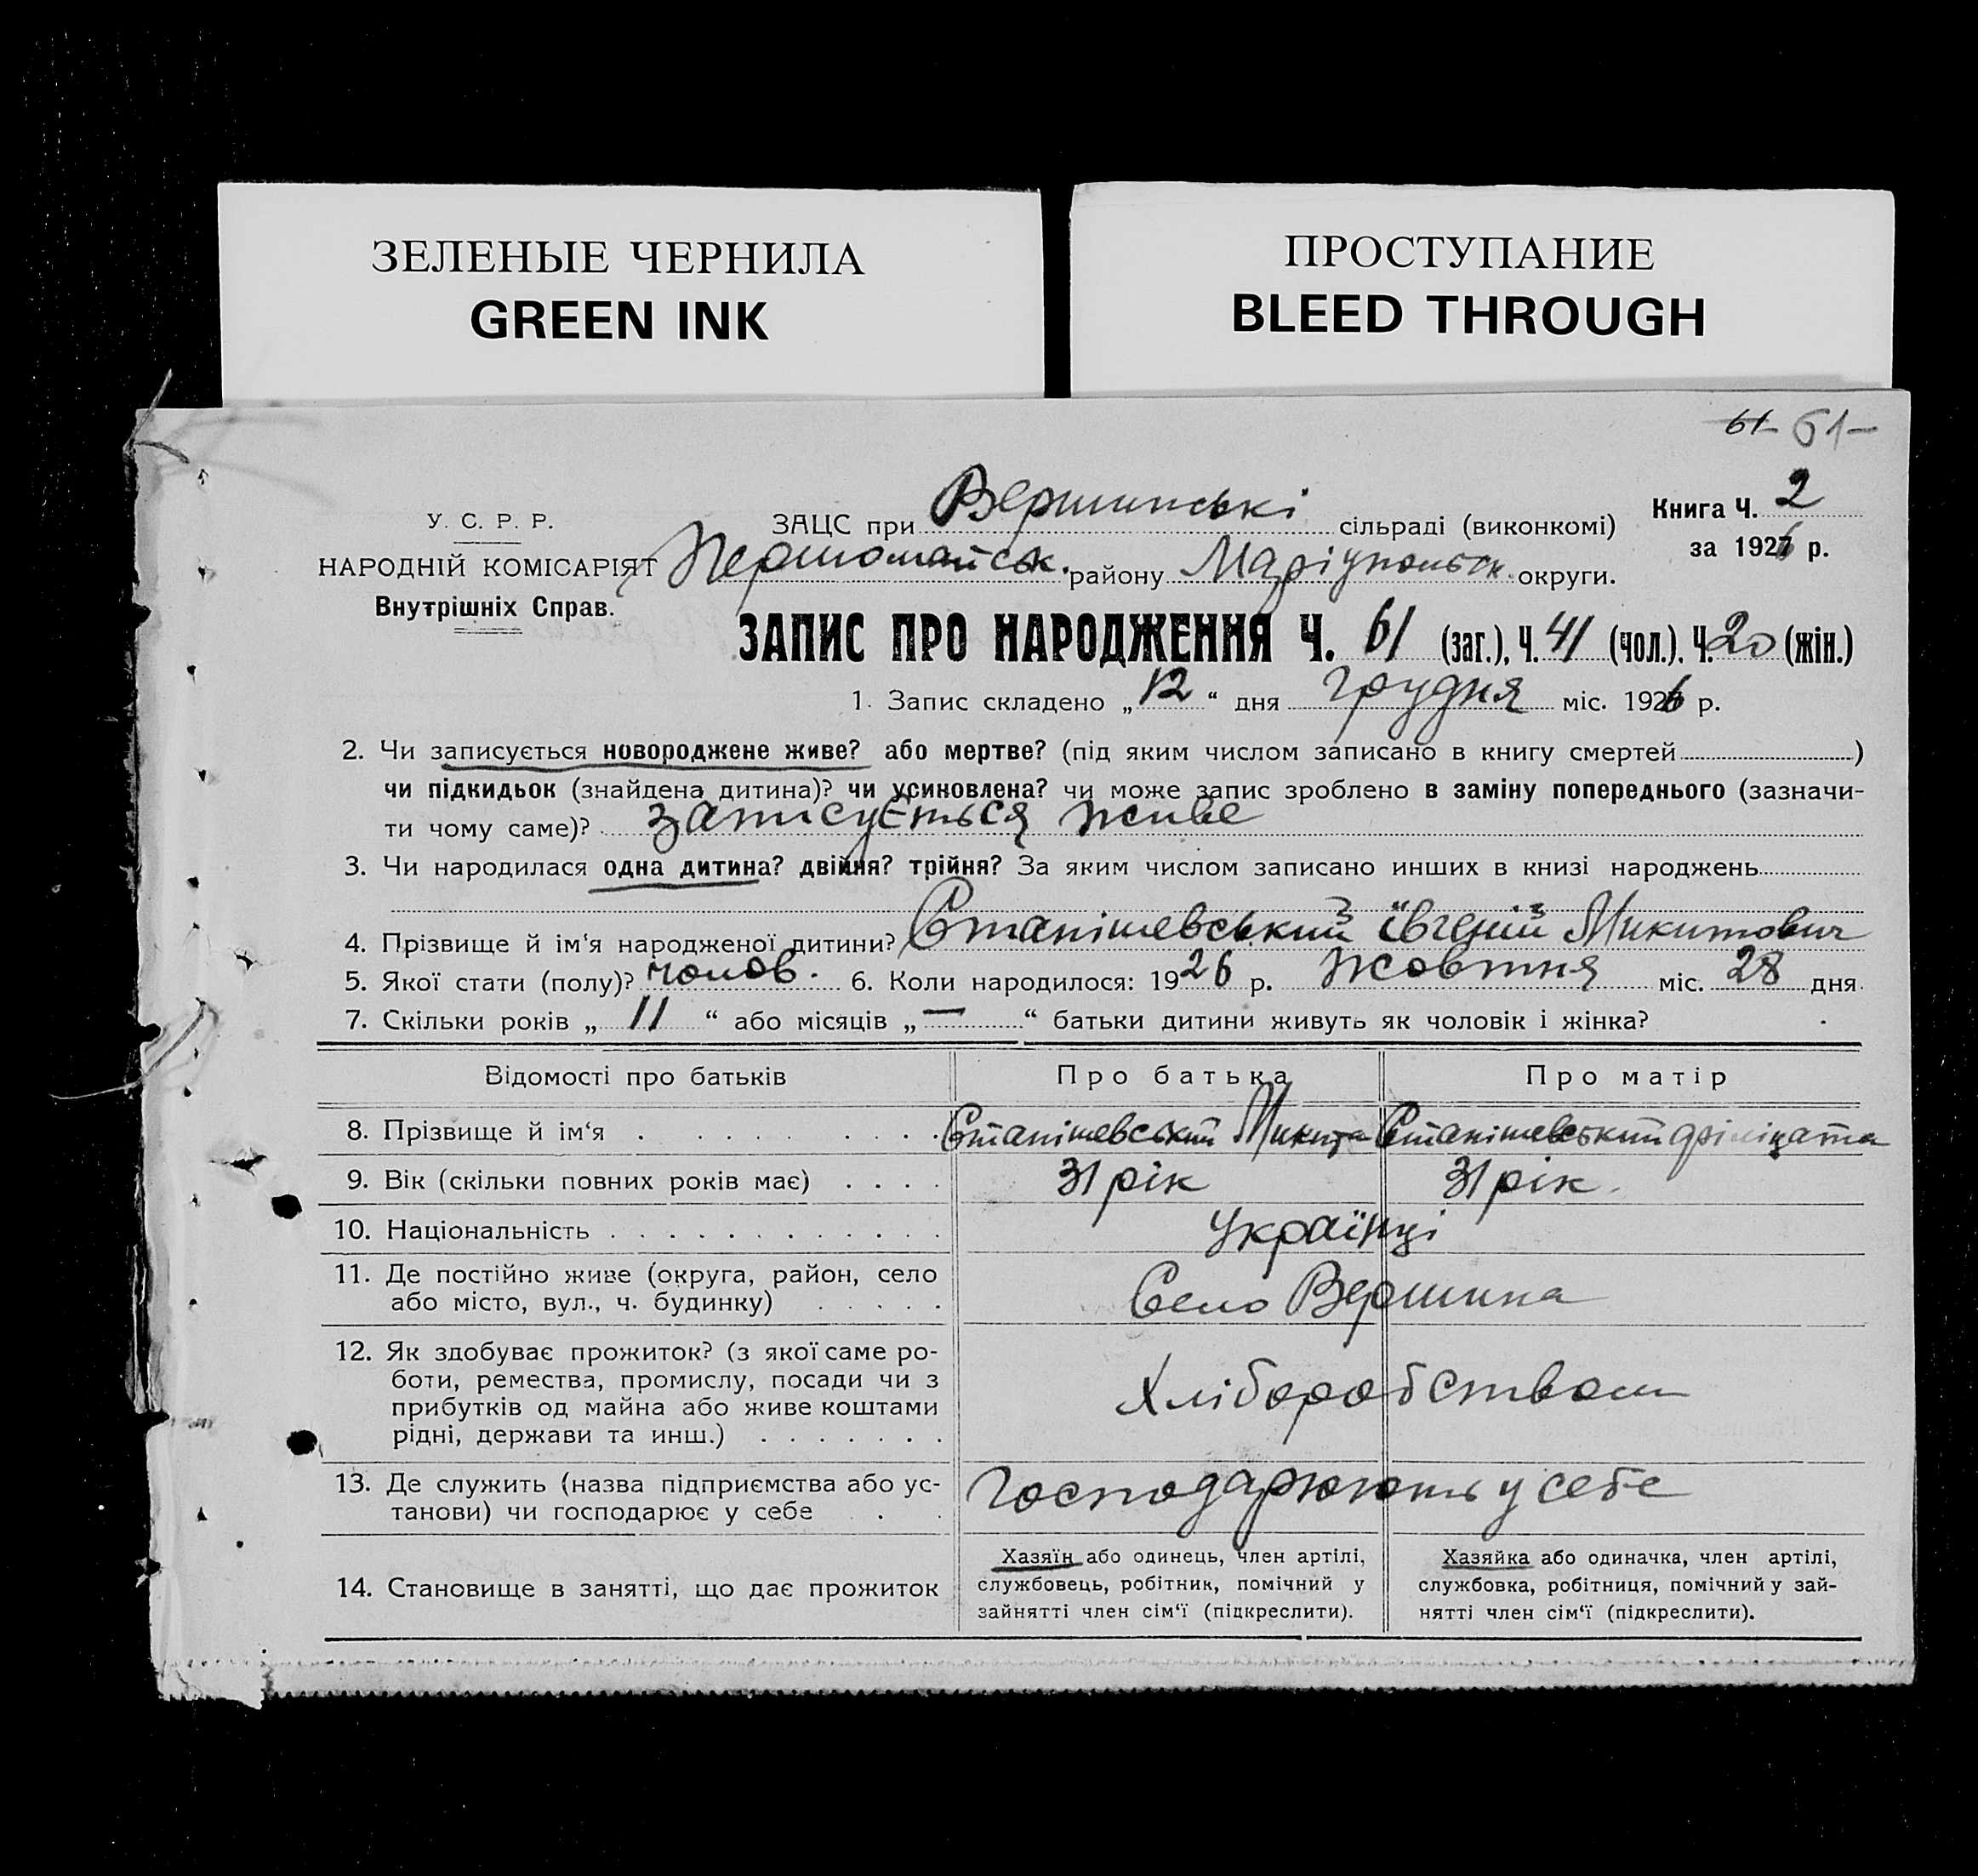 ЗЕЛЕНЫЕ ЧЕРНИЛА
GREEN INK
ПРОСТУПАНИЕ
BLEED THROUGH
61 61
У. С. Р. Р.
НАРОДНІЙ КОМІСАРІЯТ
Внутрішніх Справ.
ЗАЦС при Вершинські сільраді (виконкомі)
Першомайськ. району Маріупольськ. округи.
Книга Ч. 2
за 1926 р.
ЗАПИС ПРО НАРОДЖЕННЯ Ч. 61 (заг.), Ч. 41 (чол.). Ч. 20 (жін.)
1. Запис складено „ 12 “ дня грудня міс. 1926 р.
2. Чи записується новороджене живе? або мертве? (під яким числом записано в книгу смертей )
чи підкидьок (знайдена дитина)? чи усиновлена? чи може запис зроблено в заміну попереднього (зазначи-
ти чому саме)? записується живе
3. Чи народилася одна дитина? двійня? трійня? За яким числом записано инших в книзі народжень
4. Прізвище й ім‘я народженої дитини? Станішевський Євгеній Микитович
5. Якої стати (полу)? чолов. 6. Коли народилося: 1926 р. жовтня міс. 28 дня
7. Скільки років „ 11 “ або місяців „ — “ батьки дитини живуть як чоловік і жінка?
Відомості про батьків Про батька Про матір
8. Прізвище й ім‘я Станішевський Микита Станішевський
9. Вік (скільки повних років має) 31 рік 31 рік
10. Національність Українці
11. Де постійно живе (округа, район, село
або місто, вул., ч. будинку) Село Вершина
12. Як здобуває прожиток? (з якої саме ро-
боти, ремества, промислу, посади чи з
прибутків од майна або живе коштами
рідні, держави та инш.) Хліборобством
13. Де служить (назва підприємства або ус-
танови) чи господарює у себе Господарюють у себе
14. Становище в занятті, що дає прожиток
Хазяїн або одинець, член артілі,
службовець, робітник, помічний у
зайнятті член сім‘ї (підкреслити).
Хазяйка або одиначка, член артілі,
службовка, робітниця, помічний у зай-
нятті член сім‘ї (підкреслити).